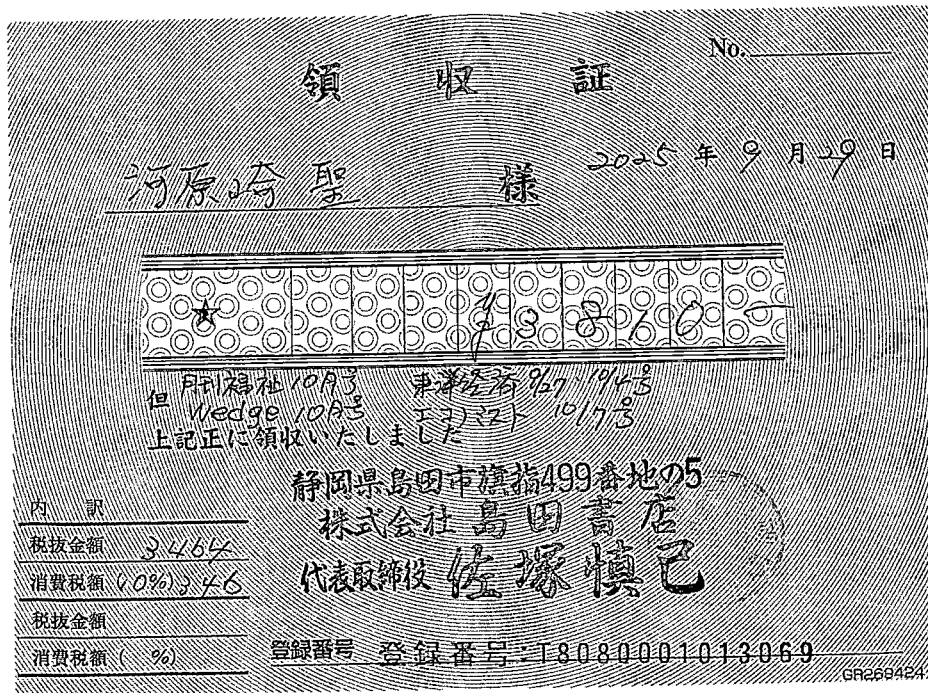 No.
領 収 証
2025 年 9 月 29 日
河原崎 聖 様
★ ¥3810-
但 月刊福祉10月号 東洋経済 9/27・10/4号
Wedge 10月号 エコノミスト 10/7号
上記正に領収いたしました
静岡県島田市旗指499番地の5
株式会社 島田書店
代表取締役 佐塚慎己
内 訳
税抜金額 3464
消費税額(10%)346
税抜金額
消費税額( %)
登録番号 登録番号:T8080001013069
GR269424